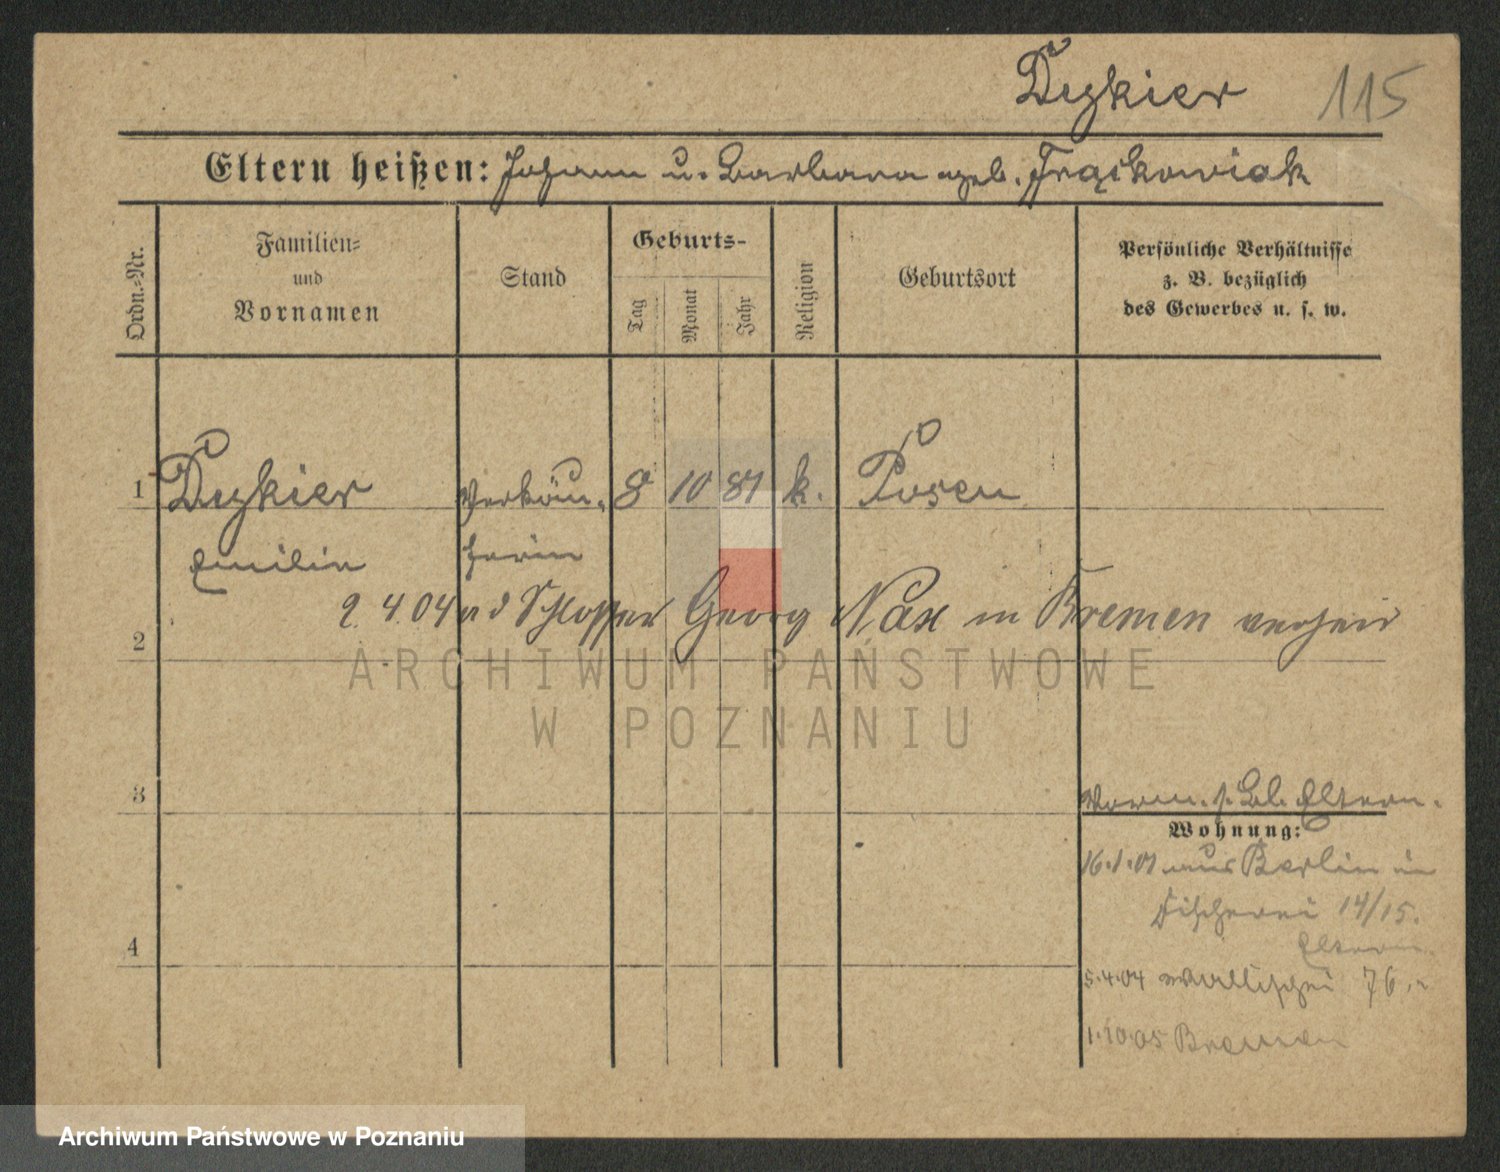 Dezkier 115
Eltern heißen: Johann u. Barbara geb. Frąckowiak
Ordn.-Nr.
Familien-
und
Vornamen
Stand
Geburts-
Tag
Monat
Jahr
Religion
Geburtsort
Persönliche Verhältnisse
z. B. bezüglich
des Gewerbes u. s. w.
1 Dezkier Verkäu- 8 10 81 k. Posen
Emilie ferin
2.4.04 Schlosser Georg Nax in Bremen verheir
2
ARCHIWUM PAŃSTWOWE
W POZNANIU
3
Vorm. s. Bl. Eltern.
Wohnung:
16.1.01 aus Berlin in
Fischerei 14/15.
Eltern
4
5.4.04 Wallischei 76
1.10.05 Bremen
Archiwum Państwowe w Poznaniu